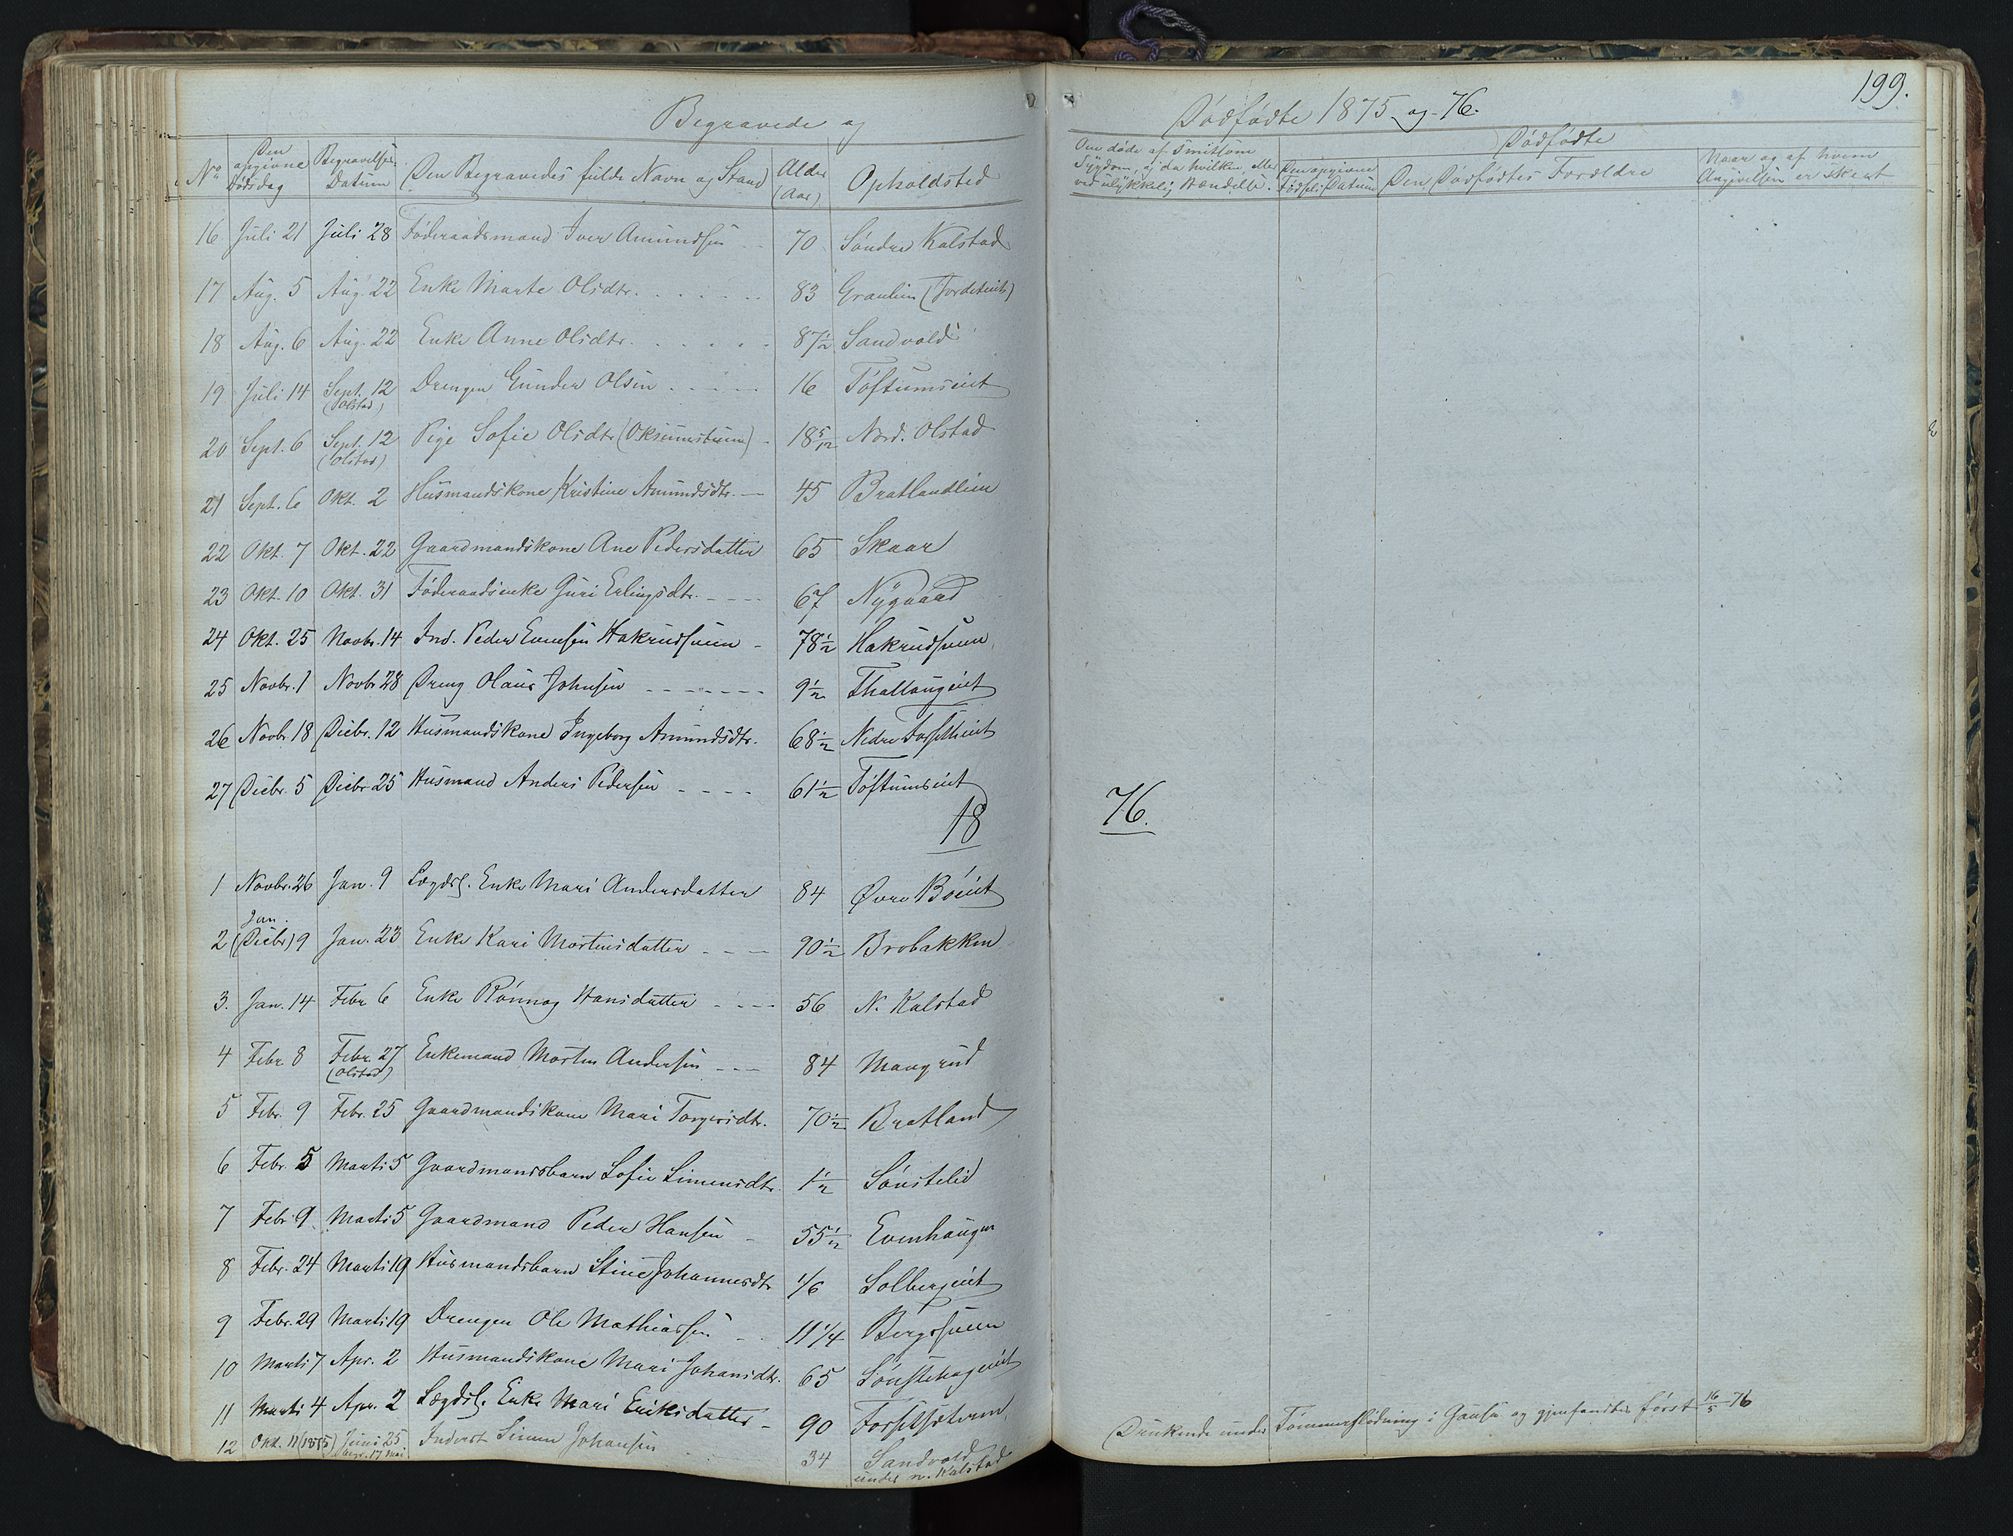 Begravede og
Dødfødte 1875 og 76.
199.
No
Den opgivne Dødsdag
Begravelses Datum
Den Begravedes fulde Navn og Stand
Alder (Aar)
Opholdsted
Om døde af smitsom Sygdom, og da hvilken, eller ved ulykkelig Hændelse.
Dødfødte
Den opgivne Fødsels Datum
Den Dødfødtes Forældre
Naar og af hvem Angivelsen er skeet
16 Juli 21 Juli 28 Føderaadsmand Iver Amundsen 70 Søndre Kalstad
17 Aug. 5 Aug. 22 Enke Marte Olsdtr. 83 Graulien (Jordeteiet)
18 Aug. 6 Aug. 22 Enke Anne Olsdtr. 87 1/2 Sandvold
19 Juli 14 Sept. 12 (Olstad) Drengen Gunder Olsen 16 Toftumseiet
20 Sept. 6 Sept. 12 (Olstad) Pige Sofie Olsdtr (Oksumstuen) 18 5/12 Nord. Olstad
21 Sept. 6 Okt. 2 Husmandskone Kristine Amundsdtr. 45 Bratlandlien
22 Okt. 7 Okt. 22 Gaardmandskone Ane Pedersdatter 65 Skaar
23 Okt. 10 Okt. 31 Føderaadsenke Guri Erlingsdtr. 67 Nygaard
24 Okt. 25 Novbr. 14 Ind. Peder Evensen Hakrudsveen 78 1/2 Hakrudsveen
25 Novbr. 1 Novbr 28 Dreng Olaus Johnsen 9 1/2 Thallaugeiet
26 Novbr 18 Decbr. 12 Husmandskone Ingeborg Amundsdtr. 68 1/2 Nedre Forsetheiet
27 Decbr. 5 Decbr 25 Husmand Anders Pedersen 61 1/2 Toftumseiet
18 76.
1 Novbr. 26 Jan. 9 Lægdsl. Enke Mari Andersdatter 84 Øvre Bøeiet
2 Jan. (Decbr) 9 Jan. 23 Enke Kari Mortensdatter 90 1/2 Brobakken
3. Jan. 14 Febr 6 Enke Rønnog Hansdatter 56 N. Kalstad
4 Febr 8 Febr. 27 (Olstad) Enkemand Morten Andersen 84 Maugrud
5 Febr. 9 Febr. 25 Gaardmandskone Mari Torgersdtr. 70 1/2 Bratland
6 Febr. 5 Marts 5 Gaardmandsbarn Sofie Simensdtr. 1 1/2 Sønstelid
7 Febr 9 Marts 5 Gaardmand Peder Hansen 55 1/2 Evenhaugen
8 Febr. 24 Marts 19 Husmandsbarn Stine Johannesdtr 1/6 Solbergeiet
9 Febr. 29 Marts 19 Drengen Ole Mathiassen 11 1/4 Bergsveen
10 Marts 7 Apr. 2 Husmandskone Mari Johansdtr. 65 Sønstehageeiet
11 Marts 4 Apr. 2 Lægdsl. Enke Mari Eriksdatter 90 Forsetsætren
12 Okt. 11 (1875) Juni 25 17 Mai Inderst Simen Johansen 34 Sandvold under N. Kalstad Druknede under Tømmerflødning i Gausa og gjenfandtes først 16/5 76